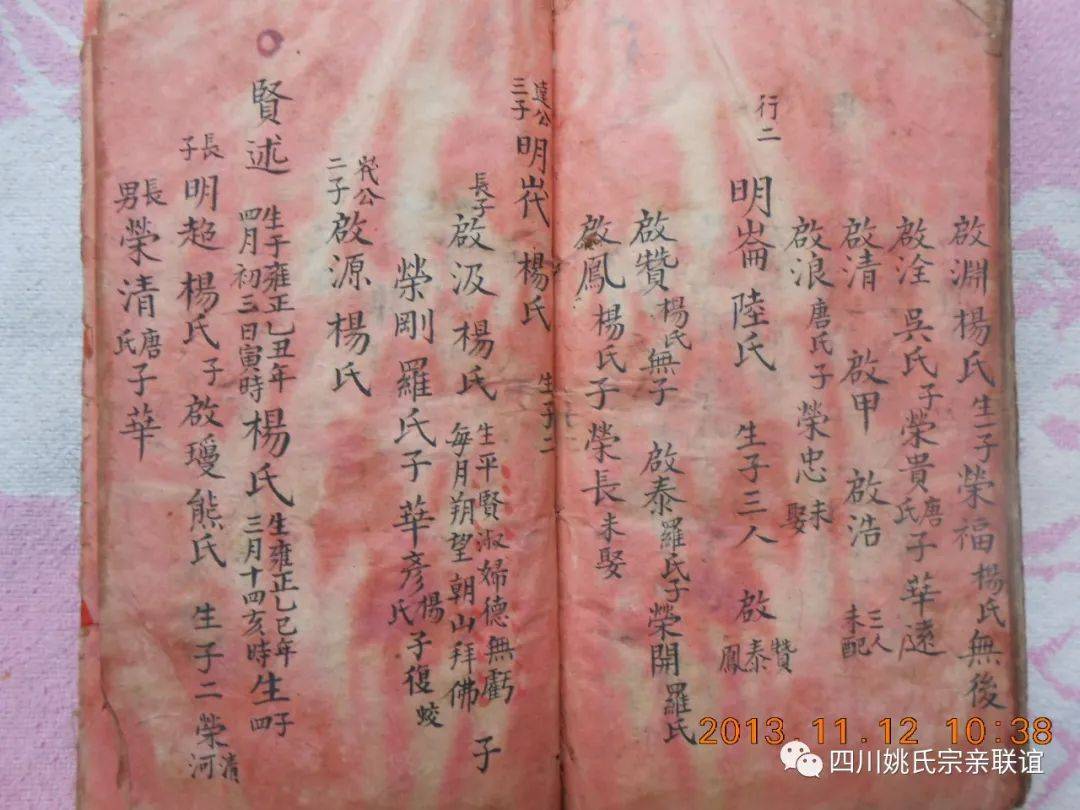 啟淵楊氏生一子榮福楊氏無後
啟洤吳氏子榮貴唐氏子華遠
啟清 啟甲 啟浩 三人未配
啟浪唐氏子榮忠未娶
行二 明崙陸氏 生子三人 啟贊泰鳳
啟贊楊氏無子 啟泰羅氏子榮開羅氏
啟鳳楊氏子榮長未娶
達公三子明岱楊氏 生子二
長子啟汲楊氏生平賢淑婦德無虧每月朔望朝山拜佛 子
榮剛羅氏子華彥楊氏子復蛟
岱公二子啟源楊氏
賢述生于雍正乙丑年四月初三日寅時楊氏生雍正乙巳年三月十四亥時生子四
長子明超楊氏子啟瓊熊氏 生子二榮清河
長男榮清唐氏子華
2013.11.12 10:38
四川姚氏宗亲联谊